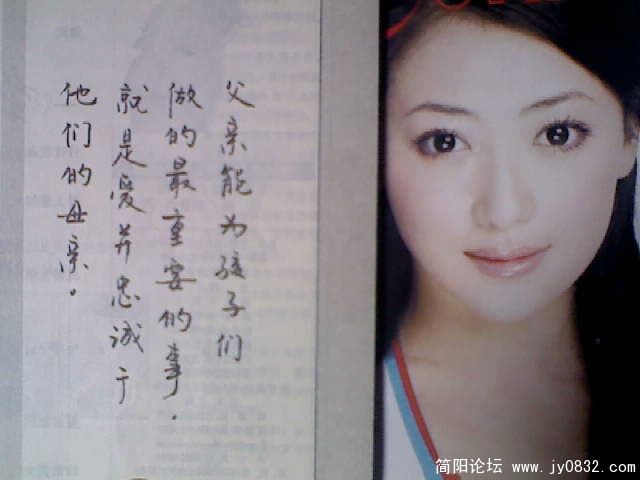 父亲能为孩子们
做的最重要的事.
就是爱并忠诚于
他们的母亲.
简阳论坛 www.jy0832.com